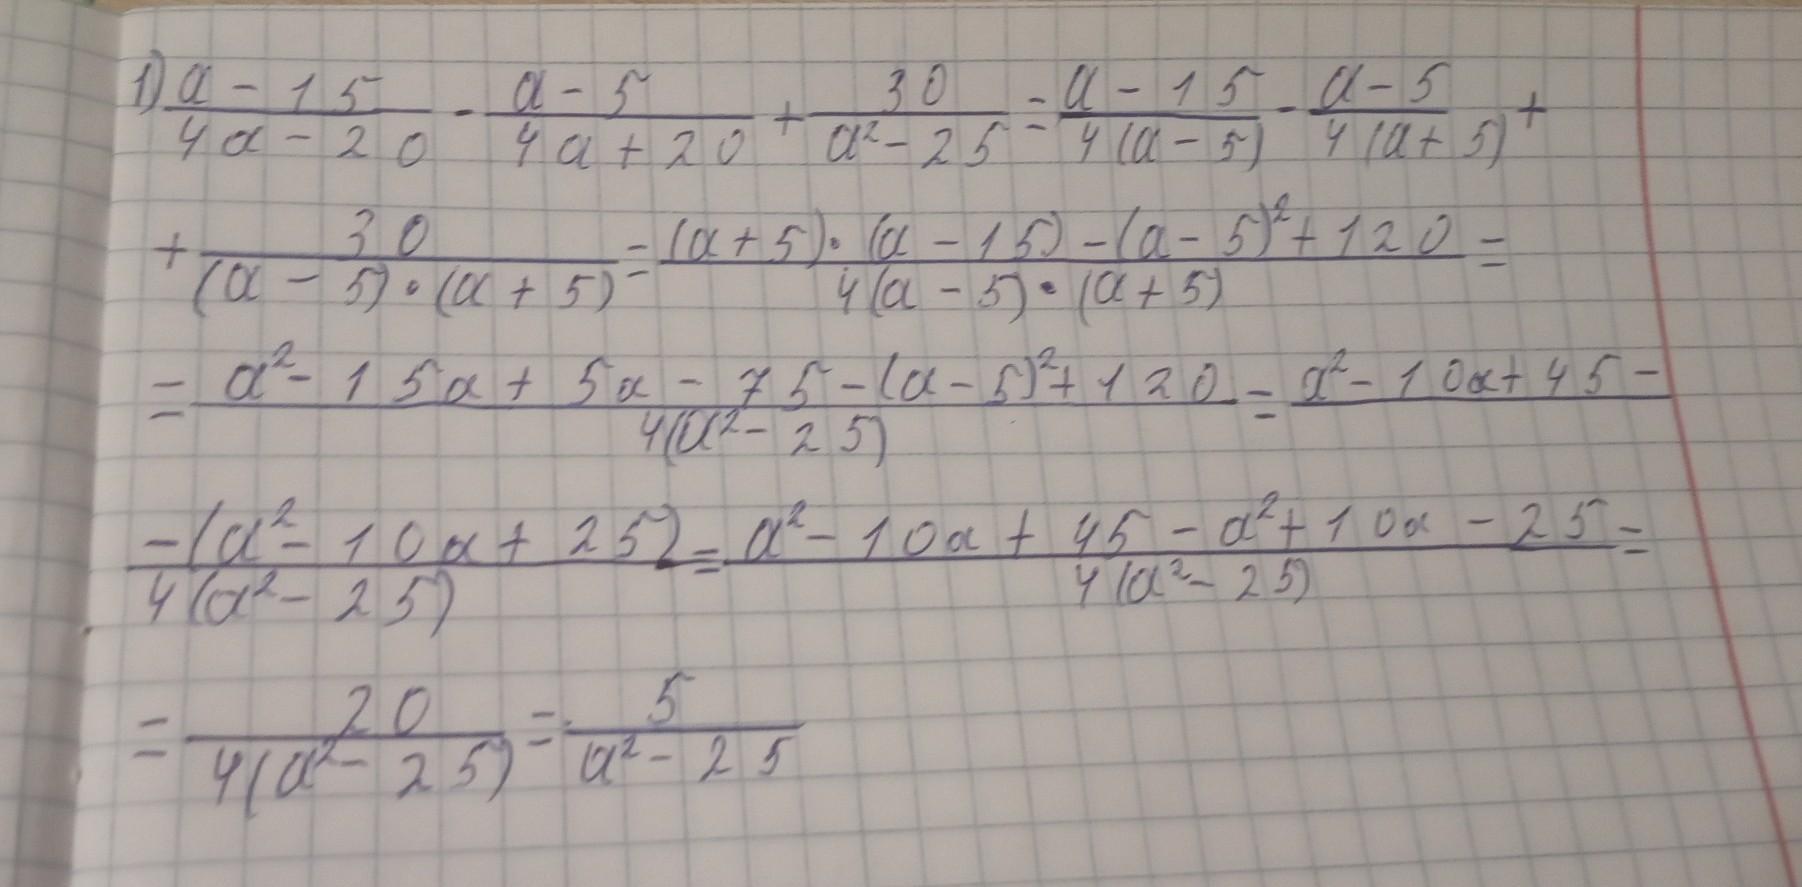 1) (a - 15)/(4a - 20) - (a - 5)/(4a + 20) + 30/(a² - 25) = (a - 15)/(4(a - 5)) - (a - 5)/(4(a + 5)) +
+ 30/((a - 5)·(a + 5)) = ((a + 5)·(a - 15) - (a - 5)² + 120)/(4(a - 5)·(a + 5)) =
= (a² - 15a + 5a - 75 - (a - 5)² + 120)/(4(a² - 25)) = a² - 10a + 45 -
- (a² - 10a + 25)/(4(a² - 25)) = (a² - 10a + 45 - a² + 10a - 25)/(4(a² - 25)) =
= 20/(4(a² - 25)) = 5/(a² - 25)